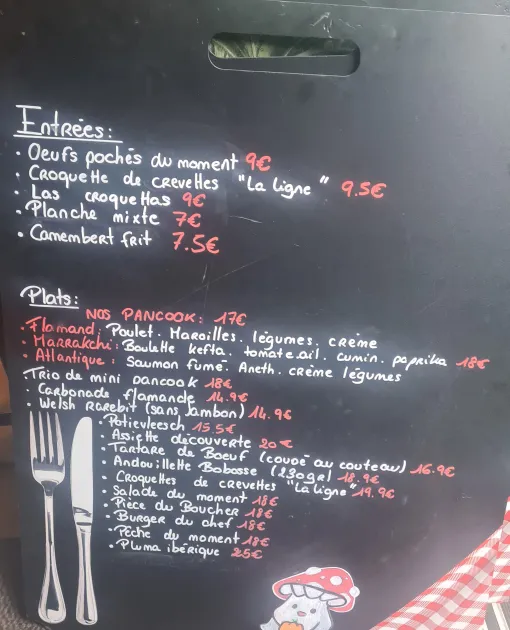 Entrées:
· Oeufs pochés du moment 9€
· Croquette de crevettes "La ligne" 9.5€
· Las croquettas 9€
· Planche mixte 7€
· Camembert frit 7.5€
Plats:
NOS PANCOOK: 17€
· Flamand: Poulet. Maroilles. légumes. crème
· Marrakchi: Boulette kefta. tomate. ail. cumin. paprika 18€
· Atlantique: Saumon fumé. Aneth. crème légumes
· Trio de mini pancook 18€
· Carbonade flamande 14.9€
· Welsh rarebit (sans jambon) 14.9€
· Potjevleesch 15.5€
· Assiette découverte 20€
· Tartare de Boeuf (coupé au couteau) 16.9€
· Andouillette Bobosse (230gr) 18.9€
· Croquettes de crevettes "La ligne" 19.9€
· Salade du moment 18€
· Pièce du Boucher 18€
· Burger du chef 18€
· Pêche du moment 18€
· Pluma ibérique 25€